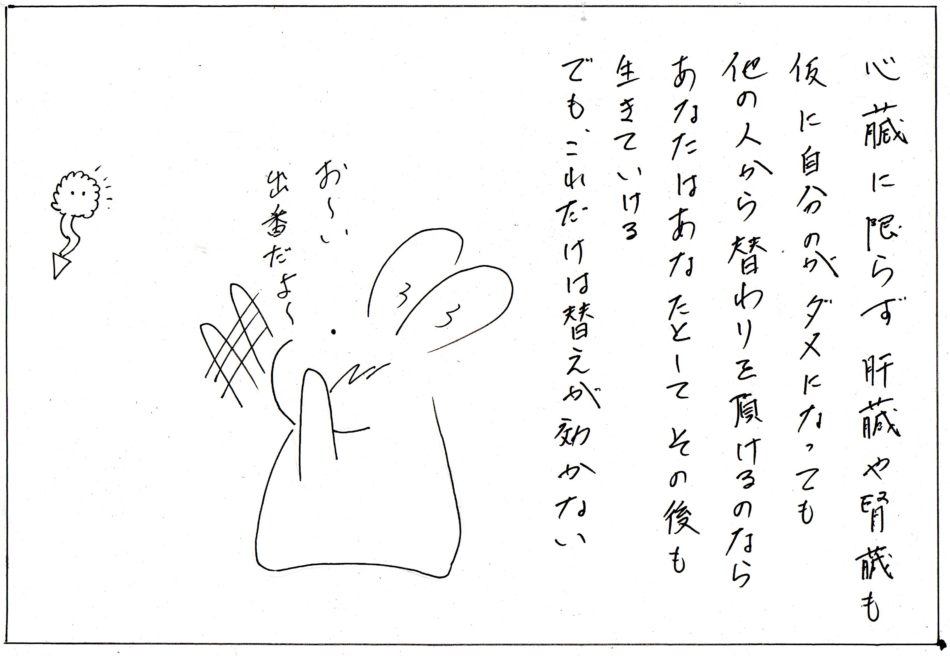 心臓に限らず 肝臓や腎臓も
仮に自分のがダメになっても
他の人から替わりを頂けるのなら
あなたはあなたとして その後も
生きていける
でも、これだけは替えが効かない
お〜い
出番だよ〜